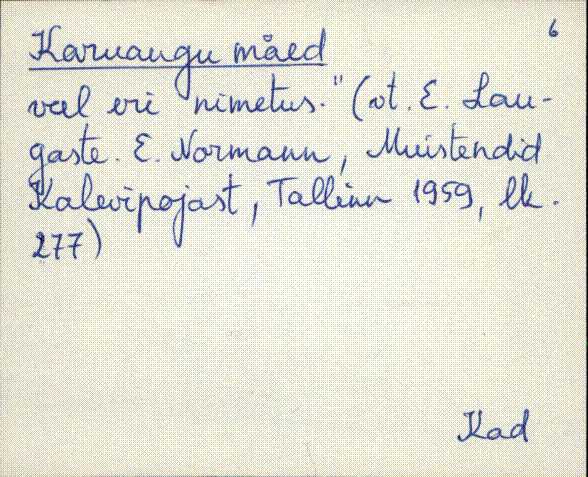 6
Karuaugu mäed
vael eri nimetus." (vt. E. Lau-
gaste. E. Normann, Muistendid
Kalevipojast, Tallinn 1959, lk.
277)
Kad